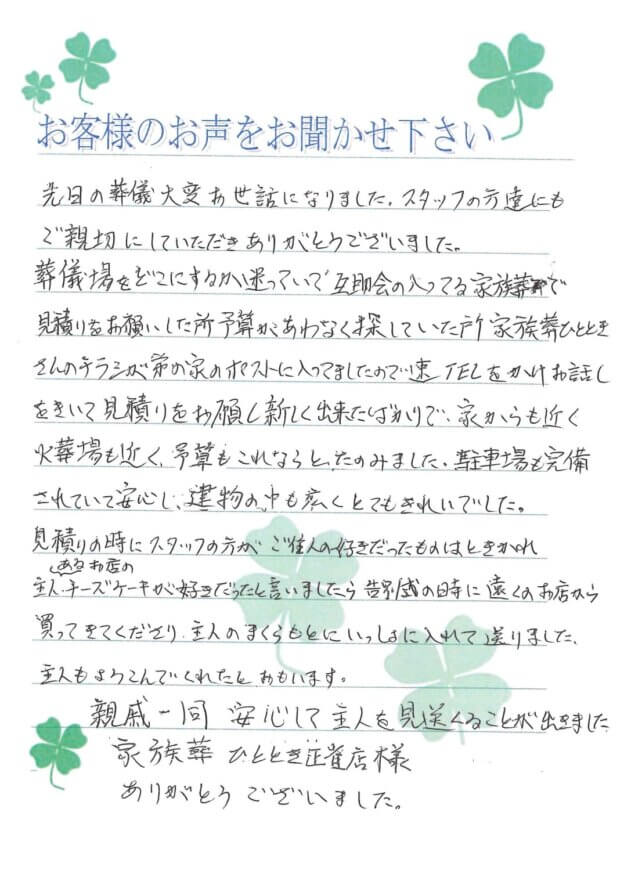 お客様のお声をお聞かせ下さい
先日の葬儀大変お世話になりました。スタッフの方達にも
ご親切にしていただきありがとうございました。
葬儀場をどこにするか迷っていて互助会の入ってる家族葬で
見積りをお願いした所予算があわなく探していた所家族葬ひととき
さんのチラシが弟の家のポストに入ってましたので速TELをかけお話し
をきいて見積りをお願し新しく出来たばかりで、家からも近く
火葬場も近く、予算もこれならと、たのみました。駐車場も完備
されていて安心し、建物の中も広くとてもきれいでした。
見積りの時にスタッフの方が、ご住人の好きだったものはときかれ
あるお店の
主人、チーズケーキが好きだったと言いましたら告別式の時に遠くのお店から
買ってきてくださり、主人のまくらもとにいっしょに入れて送りました、
主人もよろこんでくれたと、おもいます。
親戚一同 安心して主人を見送くることが出きました
家族葬 ひととき正雀店様
ありがとうございました。